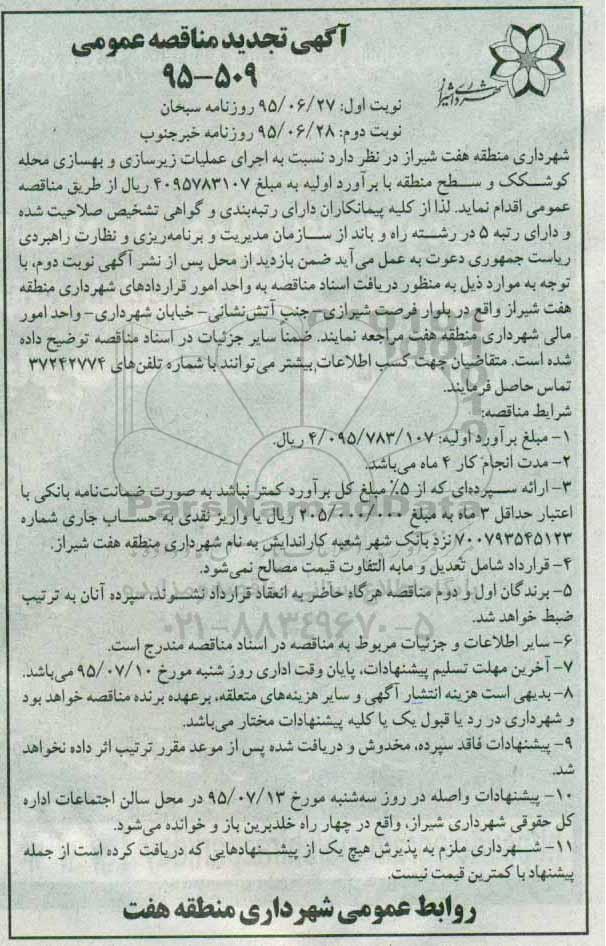 آگهی تجدید مناقصه عمومی
۹۵-۵۰۹
شهرداری شیراز
نوبت اول: ۹۵/۰۶/۲۷ روزنامه سبحان
نوبت دوم: ۹۵/۰۶/۲۸ روزنامه خبرجنوب
شهرداری منطقه هفت شیراز در نظر دارد نسبت به اجرای عملیات زیرسازی و بهسازی محله
کوشکک و سطح منطقه با برآورد اولیه به مبلغ ۴۰۹۵۷۸۳۱۰۷ ریال از طریق مناقصه
عمومی اقدام نماید. لذا از کلیه پیمانکاران دارای رتبه‌بندی و گواهی تشخیص صلاحیت شده
و دارای رتبه ۵ در رشته راه و باند از سازمان مدیریت و برنامه‌ریزی و نظارت راهبردی
ریاست جمهوری دعوت به عمل می‌آید ضمن بازدید از محل پس از نشر آگهی نوبت دوم، با
توجه به موارد ذیل به منظور دریافت اسناد مناقصه به واحد امور قراردادهای شهرداری منطقه
هفت شیراز واقع در بلوار فرصت شیرازی- جنب آتش‌نشانی- خیابان شهرداری- واحد امور
مالی شهرداری منطقه هفت مراجعه نمایند. ضمناً سایر جزئیات در اسناد مناقصه توضیح داده
شده است. متقاضیان جهت کسب اطلاعات بیشتر می‌توانند با شماره تلفن‌های ۳۷۲۴۲۷۷۴
تماس حاصل فرمایند.
شرایط مناقصه:
۱- مبلغ برآورد اولیه: ۴/۰۹۵/۷۸۳/۱۰۷ ریال.
۲- مدت انجام کار ۴ ماه می‌باشد.
۳- ارائه سپرده‌ای که از ۵٪ مبلغ کل برآورد کمتر نباشد به صورت ضمانت‌نامه بانکی با
اعتبار حداقل ۳ ماه به مبلغ ۲۰۵/۰۰۰/۰۰۰ ریال یا واریز نقدی به حساب جاری شماره
۷۰۰۷۹۳۵۴۵۱۲۳ نزد بانک شهر شعبه کاراندایش به نام شهرداری منطقه هفت شیراز.
۴- قرارداد شامل تعدیل و مابه التفاوت قیمت مصالح نمی‌شود.
۵- برندگان اول و دوم مناقصه هرگاه حاضر به انعقاد قرارداد نشوند، سپرده آنان به ترتیب
ضبط خواهد شد.
۶- سایر اطلاعات و جزئیات مربوط به مناقصه در اسناد مناقصه مندرج است.
۷- آخرین مهلت تسلیم پیشنهادات، پایان وقت اداری روز شنبه مورخ ۹۵/۰۷/۱۰ می‌باشد.
۸- بدیهی است هزینه انتشار آگهی و سایر هزینه‌های متعلقه، برعهده برنده مناقصه خواهد بود
و شهرداری در رد یا قبول یک یا کلیه پیشنهادات مختار می‌باشد.
۹- پیشنهادات فاقد سپرده، مخدوش و دریافت شده پس از موعد مقرر ترتیب اثر داده نخواهد
شد.
۱۰- پیشنهادات واصله در روز سه‌شنبه مورخ ۹۵/۰۷/۱۳ در محل سالن اجتماعات اداره
کل حقوقی شهرداری شیراز، واقع در چهار راه خلدبرین باز و خوانده می‌شود.
۱۱- شهرداری ملزم به پذیرش هیچ یک از پیشنهادهایی که دریافت کرده است از جمله
پیشنهاد با کمترین قیمت نیست.
روابط عمومی شهرداری منطقه هفت
ParsNamadData
۰۲۱-۸۸۳۴۹۶۷۰-۵